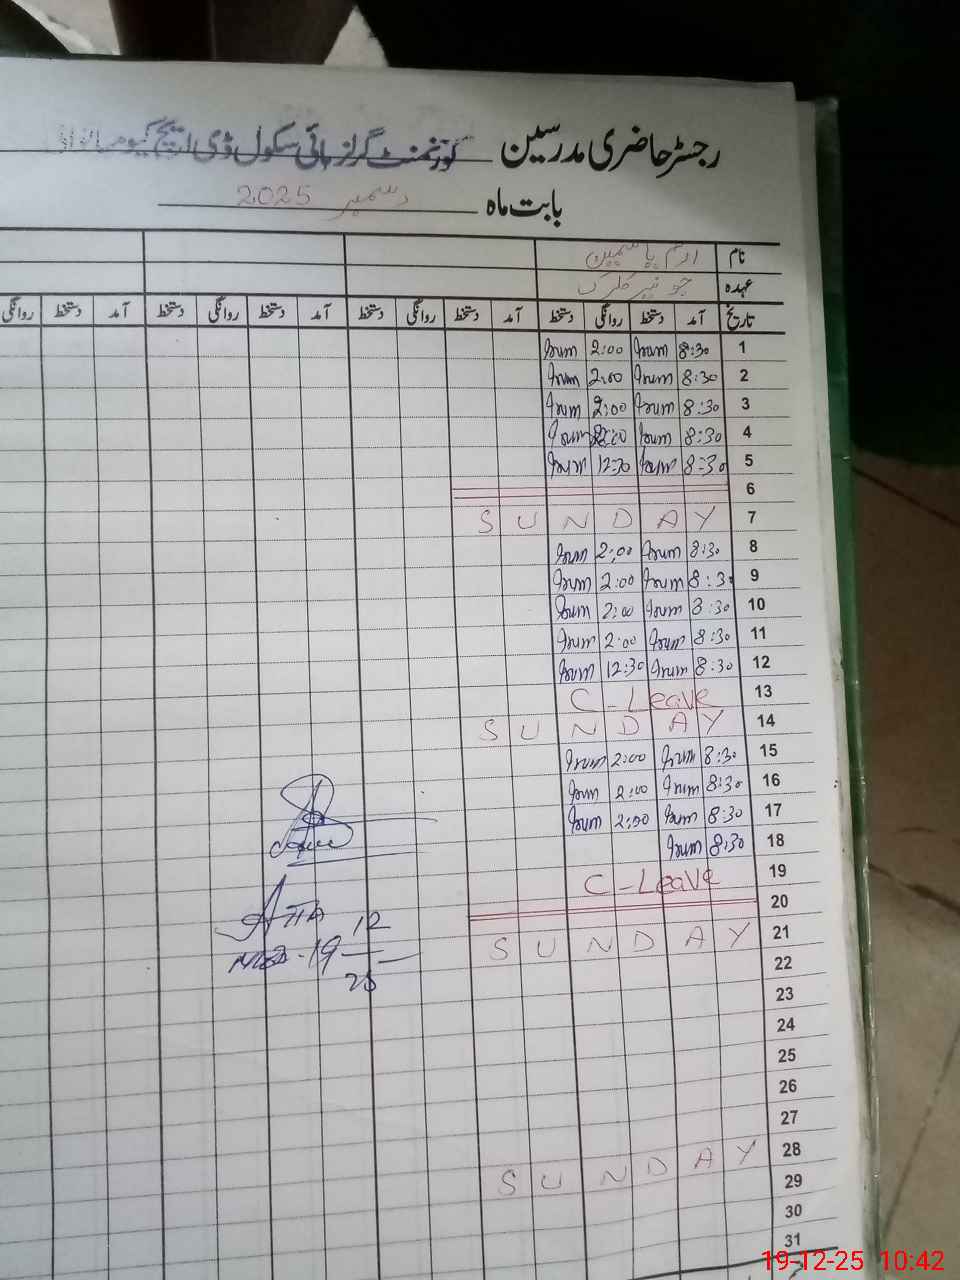 رجسٹر حاضری مدرسین گورنمنٹ گرلز ہائی سکول ڈی ایچ کیو
بابت ماہ دسمبر 2025
نام ارم یاسمین
عہدہ جونیئر کلرک
تاریخ آمد دستخط روانگی دستخط آمد دستخط روانگی دستخط آمد دستخط روانگی دستخط آمد دستخط روانگی
1 8:30 Irum 2:00 Irum
2 8:30 Irum 2:00 Irum
3 8:30 Irum 2:00 Irum
4 8:30 Irum Irum
5 8:30 Irum 12:30 Irum
6
7 SUNDAY
8 8:30 Irum 2:00 Irum
9 8:30 Irum 2:00 Irum
10 8:30 Irum 2:00 Irum
11 8:30 Irum 2:00 Irum
12 8:30 Irum 12:30 Irum
13 C-Leave
14 SUNDAY
15 8:30 Irum 2:00 Irum
16 8:30 Irum 2:00 Irum
17 8:30 Irum 2:00 Irum
18 8:30 Irum
19 C-Leave
20
21 SUNDAY
22
23
24
25
26
27
28 SUNDAY
29
30
31
19
12
25
19-12-25 10:42